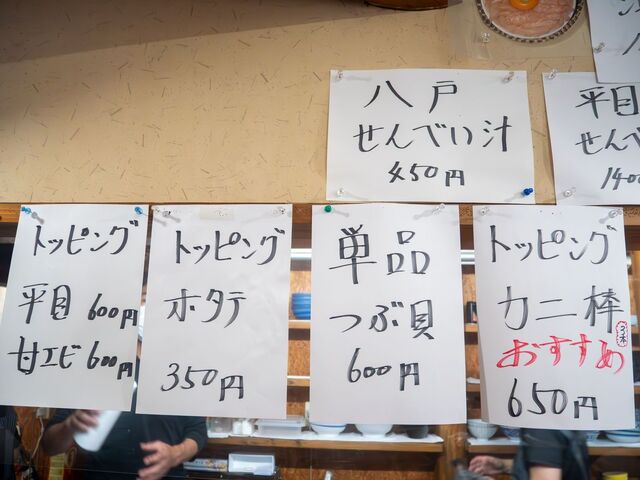 八戸
せんべい汁
450円
平目
せんべ
1400
トッピング
平目 600円
甘エビ 600円
トッピング
ホタテ
350円
単品
つぶ貝
600円
トッピング
カニ棒
3本
おすすめ
650円